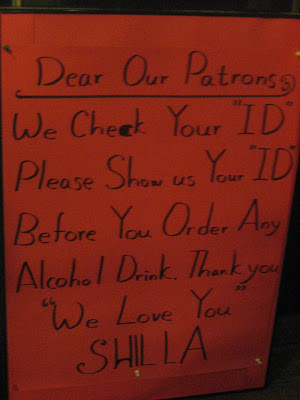 Dear Our Patrons
We Check Your "ID"
Please Show us Your "ID"
Before You Order Any
Alcohol Drink. Thank you
"We Love You"
SHILLA